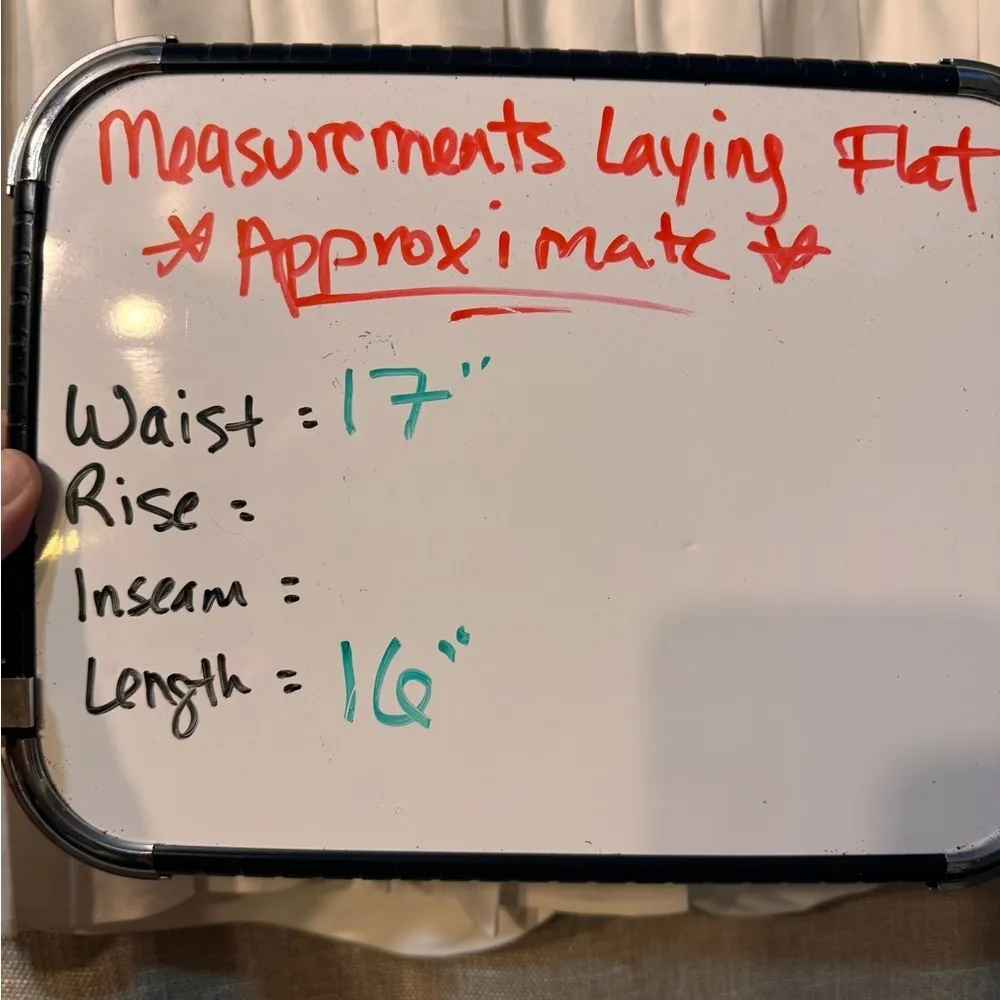 Measurements Laying Flat
* Approximate *
Waist = 17"
Rise =
Inseam =
Length = 16"